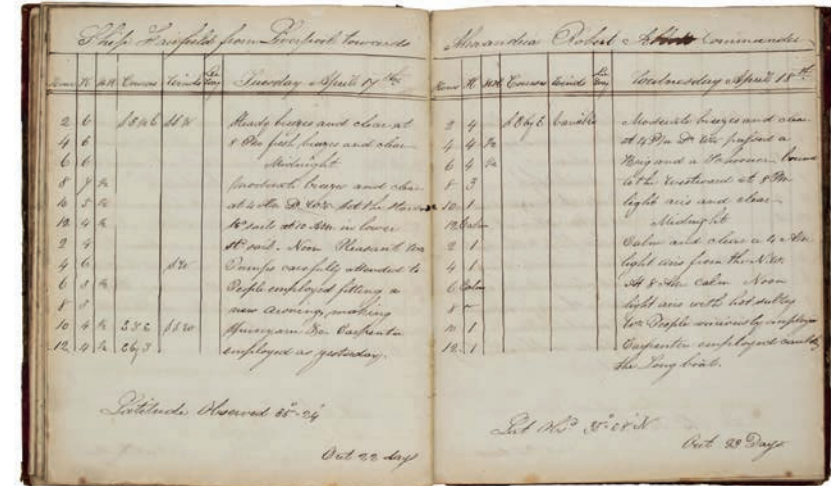 Ship Fairfield from Liverpool towards
Hour K H.K Courses Winds Lee Way Tuesday April 17th
2 6 SSW Steady breezes and clear at
4 6 8 Pm fresh breezes and clear
6 6 Midnight
8 7 Moderate breeze and clear
10 5 at 4 Am Do Wr Set the
12 4 sails at 10 Am in lower
2 4 sail. Noon Pleasant
4 6 SW Pumps carefully attended to
6 3 People employed fitting a
8 3 new awning, making
10 4 Carpenter
12 4 employed as yesterday.
Latitude Observed 35°-24'
Out 22 days
Alexandria Robert Commander
Hour K H.K Courses Winds Lee Way Wednesday April 18th
2 4 SE by E Variable Moderate breezes and clear
4 4 at 4 Pm Do Wr passed a
6 4 Brig and a Schooner bound
8 3 to the Westward at 8 Pm
10 1 light airs and clear
12 Calm Midnight
2 1 Calm and clear a 4 Am
4 1 light airs from the N.W.
6 Calm At 8 Am Calm Noon
8 ~ light airs with hot sultry
10 1 Wr People variously employed
12 1 Carpenter employed caulking
the Long boat.
Lat Obsd 35°-08' N
Out 23 Days